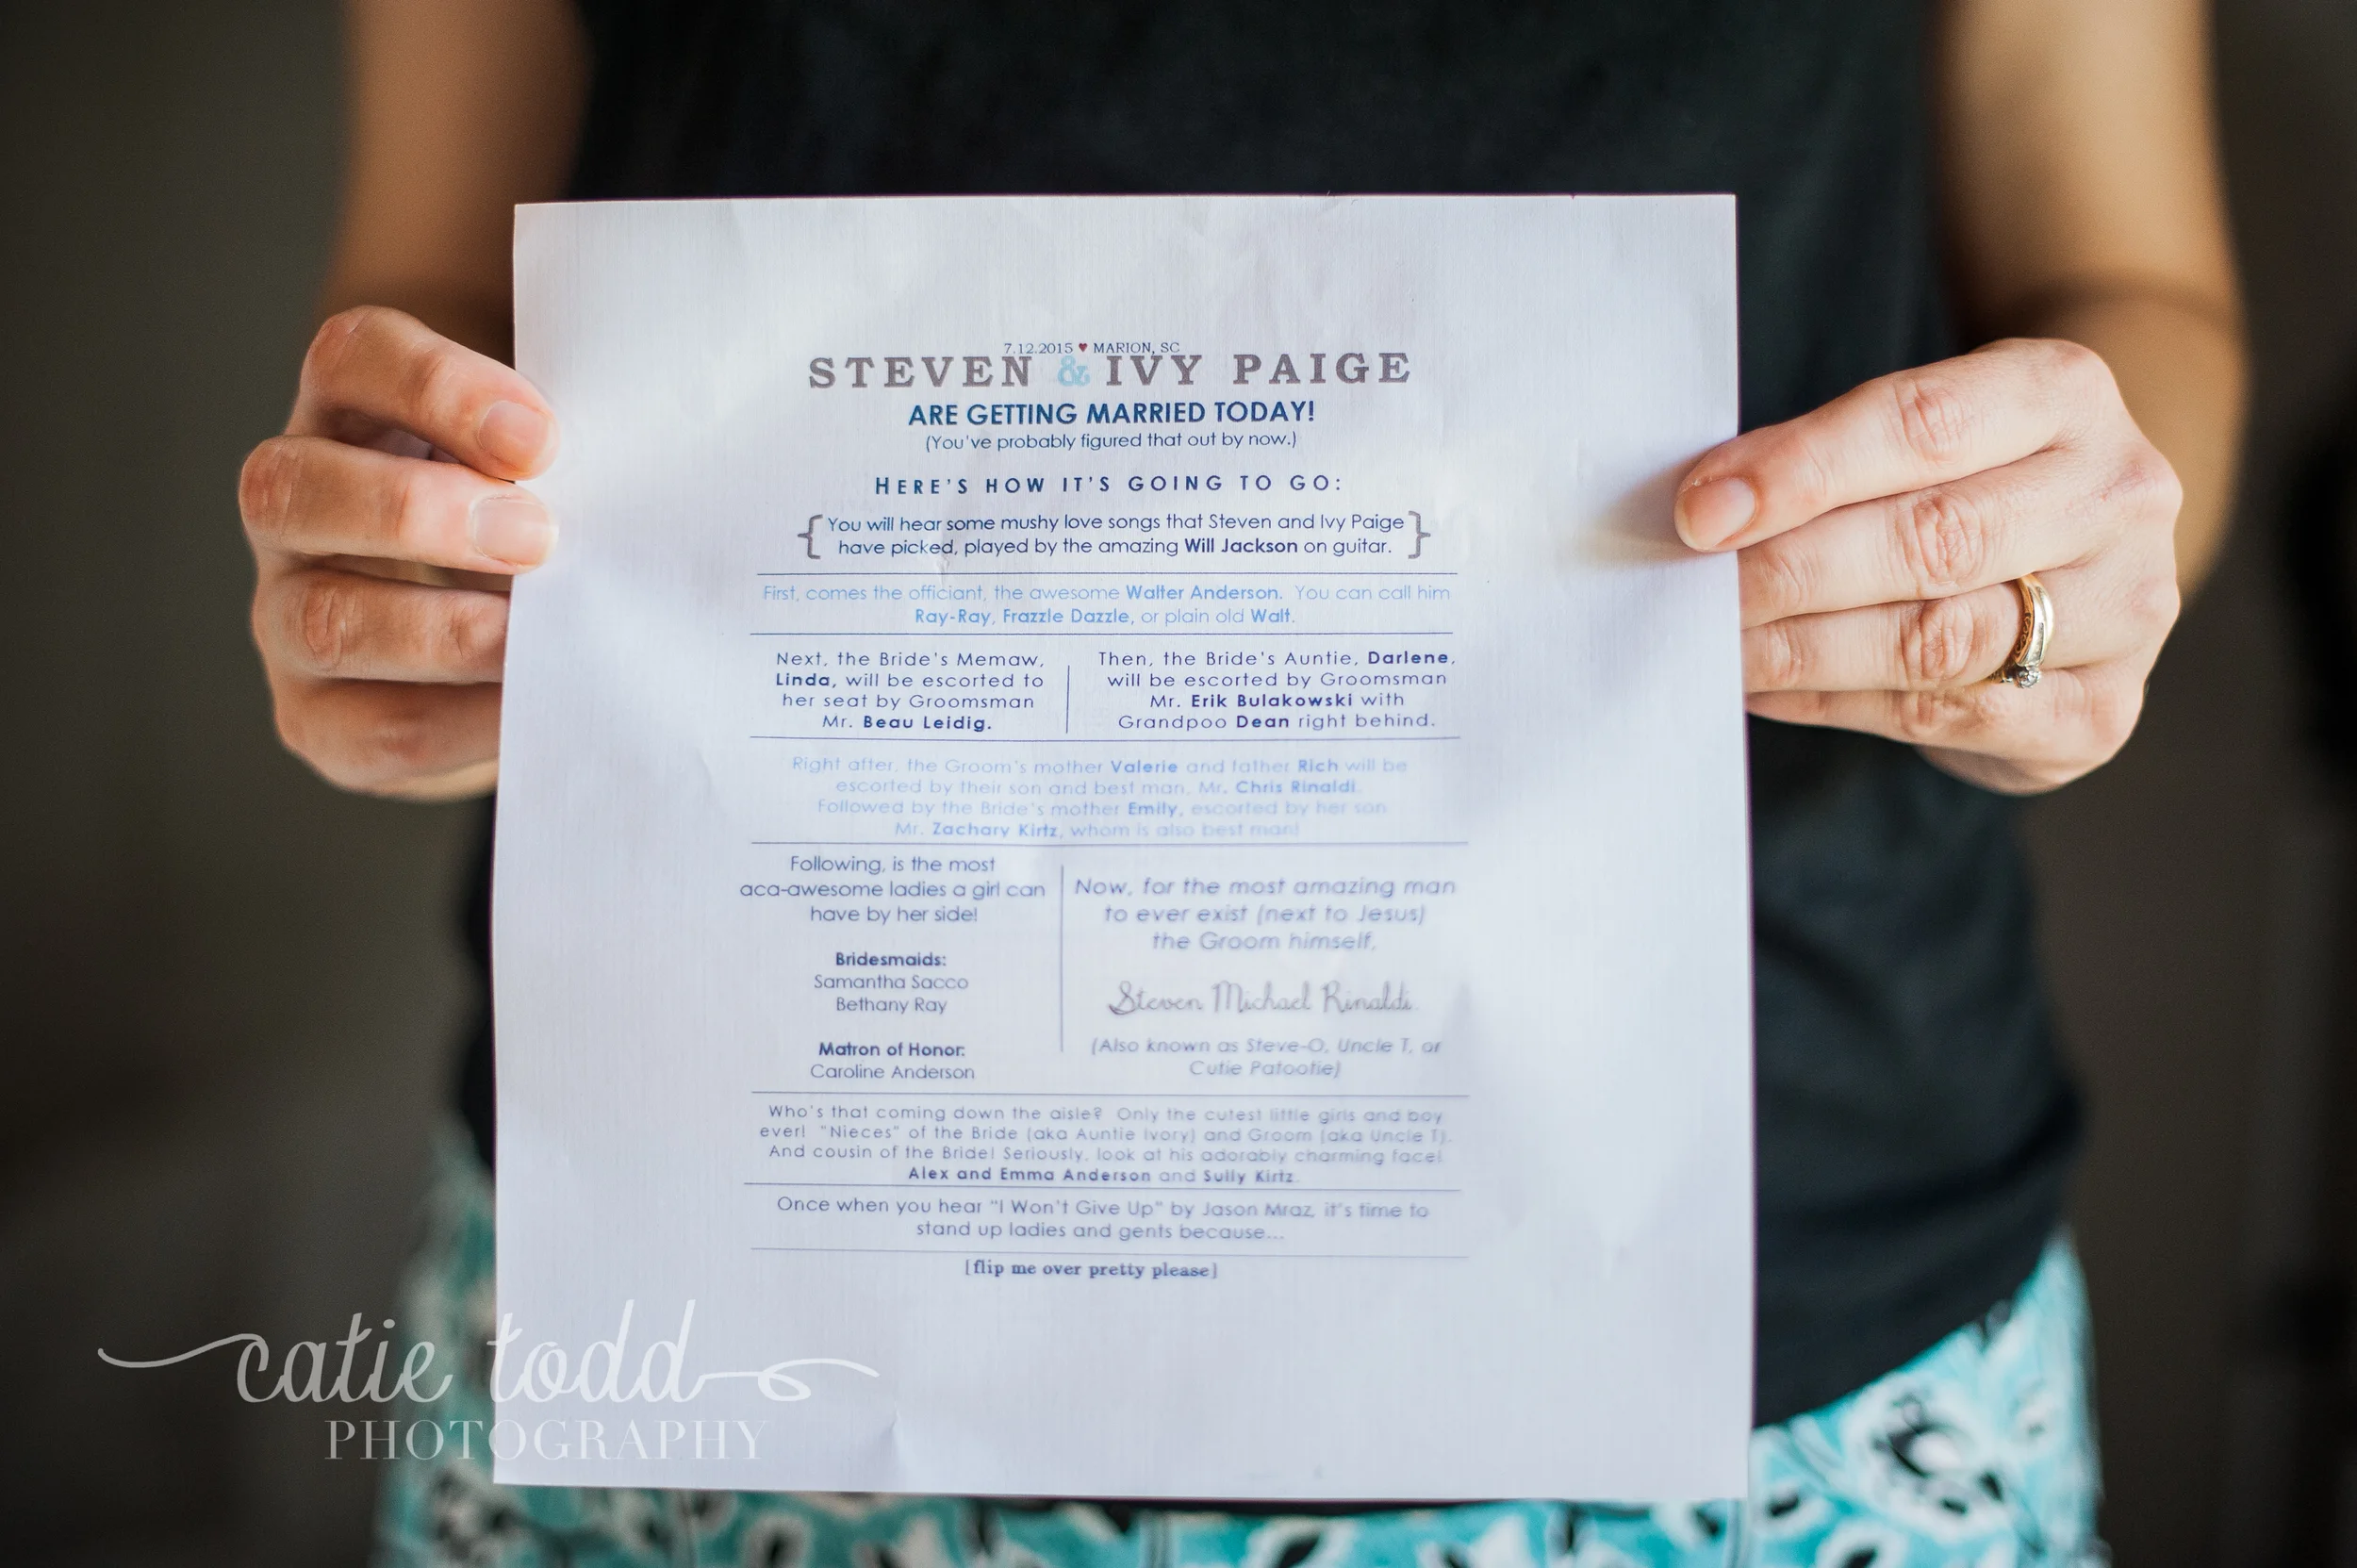 7.12.2015 ♥ MARION, SC
STEVEN & IVY PAIGE
ARE GETTING MARRIED TODAY!
(You've probably figured that out by now.)
HERE'S HOW IT'S GOING TO GO:
{ You will hear some mushy love songs that Steven and Ivy Paige
have picked, played by the amazing Will Jackson on guitar. }
First, comes the officiant, the awesome Walter Anderson. You can call him
Ray-Ray, Frazzle Dazzle, or plain old Walt.
Next, the Bride's Memaw,
Linda, will be escorted to
her seat by Groomsman
Mr. Beau Leidig.
Then, the Bride's Auntie, Darlene,
will be escorted by Groomsman
Mr. Erik Bulakowski with
Grandpoo Dean right behind.
Right after, the Groom's mother Valerie and father Rich will be
escorted by their son and best man, Mr. Chris Rinaldi.
Followed by the Bride's mother Emily, escorted by her son
Mr. Zachary Kirtz, whom is also best man!
Following, is the most
aca-awesome ladies a girl can
have by her side!
Bridesmaids:
Samantha Sacco
Bethany Ray
Matron of Honor:
Caroline Anderson
Now, for the most amazing man
to ever exist (next to Jesus)
the Groom himself,
Steven Michael Rinaldi.
(Also known as Steve-O, Uncle T, or
Cutie Patootie)
Who's that coming down the aisle? Only the cutest little girls and boy
ever! "Nieces" of the Bride (aka Auntie Ivory) and Groom (aka Uncle T).
And cousin of the Bride! Seriously, look at his adorably charming face!
Alex and Emma Anderson and Sully Kirtz.
Once when you hear "I Won't Give Up" by Jason Mraz, it's time to
stand up ladies and gents because...
[flip me over pretty please]
catie todd
PHOTOGRAPHY